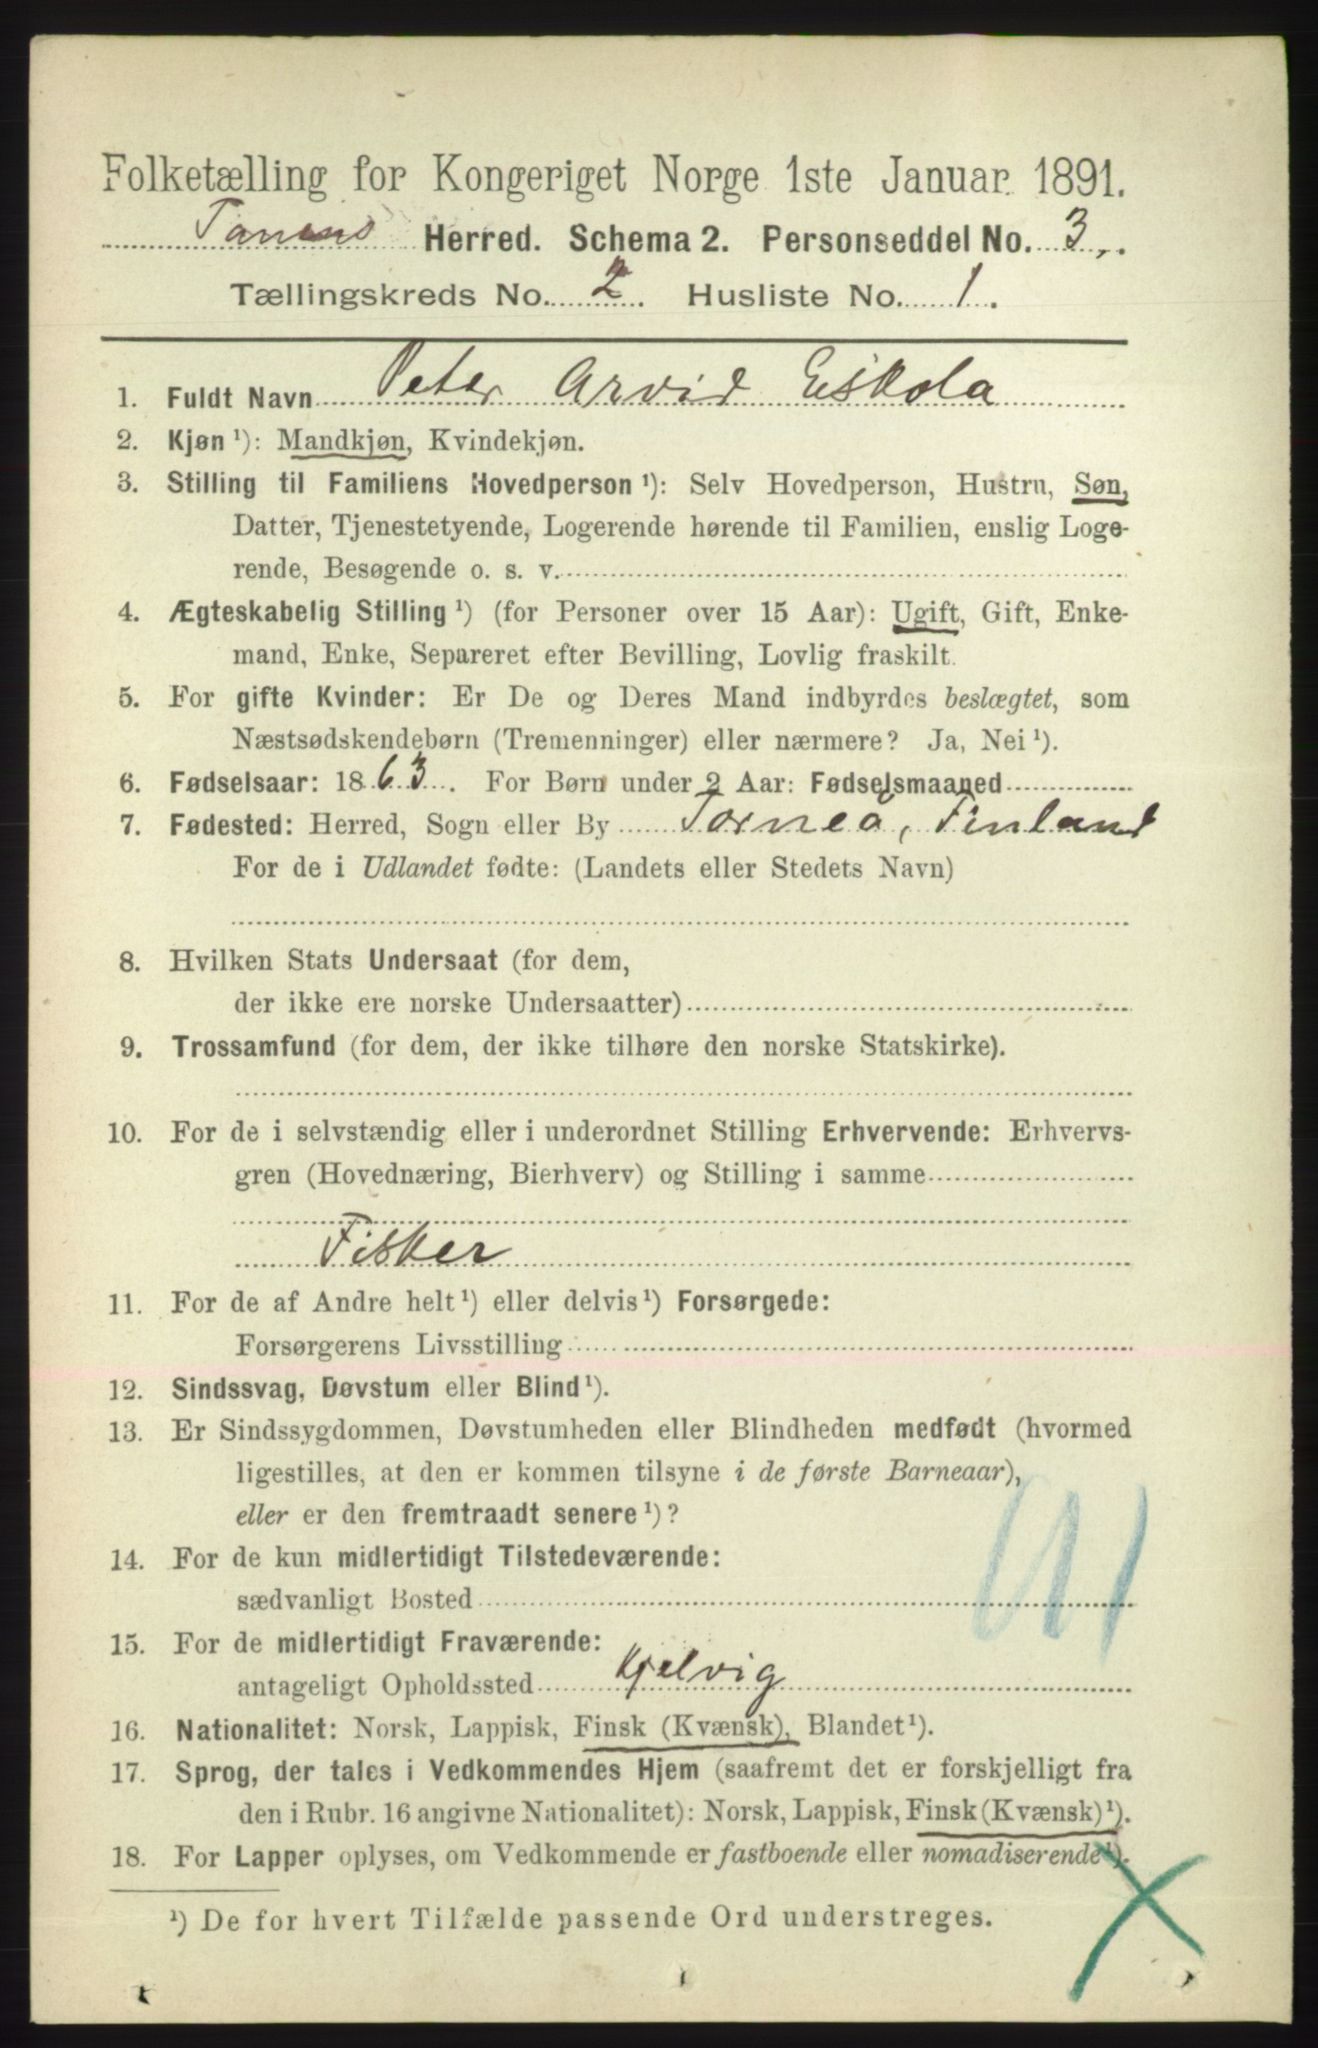 Folketælling for Kongeriget Norge 1ste Januar 1891.
Tanens Herred. Schema 2. Personseddel No. 3.
Tællingskreds No. 2. Husliste No. 1.
1. Fuldt Navn Peter Arvid Eskola
2. Kjøn ¹): Mandkjøn, Kvindekjøn.
3. Stilling til Familiens Hovedperson ¹): Selv Hovedperson, Hustru, Søn,
Datter, Tjenestetyende, Logerende hørende til Familien, enslig Loge-
rende, Besøgende o. s. v.
4. Ægteskabelig Stilling ¹) (for Personer over 15 Aar): Ugift, Gift, Enke-
mand, Enke, Separeret efter Bevilling, Lovlig fraskilt.
5. For gifte Kvinder: Er De og Deres Mand indbyrdes beslægtet, som
Næstsødskendebørn (Tremenninger) eller nærmere? Ja, Nei ¹).
6. Fødselsaar: 1863. For Børn under 2 Aar: Fødselsmaaned
7. Fødested: Herred, Sogn eller By Torneå, Finland
For de i Udlandet fødte: (Landets eller Stedets Navn)
8. Hvilken Stats Undersaat (for dem,
der ikke ere norske Undersaatter)
9. Trossamfund (for dem, der ikke tilhøre den norske Statskirke).
10. For de i selvstændig eller i underordnet Stilling Erhvervende: Erhvervs-
gren (Hovednæring, Bierhverv) og Stilling i samme
Fisker
11. For de af Andre helt ¹) eller delvis ¹) Forsørgede:
Forsørgerens Livsstilling
12. Sindssvag, Døvstum eller Blind ¹).
13. Er Sindssygdommen, Døvstumheden eller Blindheden medfødt (hvormed
ligestilles, at den er kommen tilsyne i de første Barneaar),
eller er den fremtraadt senere ¹)?
14. For de kun midlertidigt Tilstedeværende:
sædvanligt Bosted
15. For de midlertidigt Fraværende:
antageligt Opholdssted Kjelvig
16. Nationalitet: Norsk, Lappisk, Finsk (Kvænsk), Blandet ¹).
17. Sprog, der tales i Vedkommendes Hjem (saafremt det er forskjelligt fra
den i Rubr. 16 angivne Nationalitet): Norsk, Lappisk, Finsk (Kvænsk) ¹).
18. For Lapper oplyses, om Vedkommende er fastboende eller nomadiserende ¹).
¹) De for hvert Tilfælde passende Ord understreges.